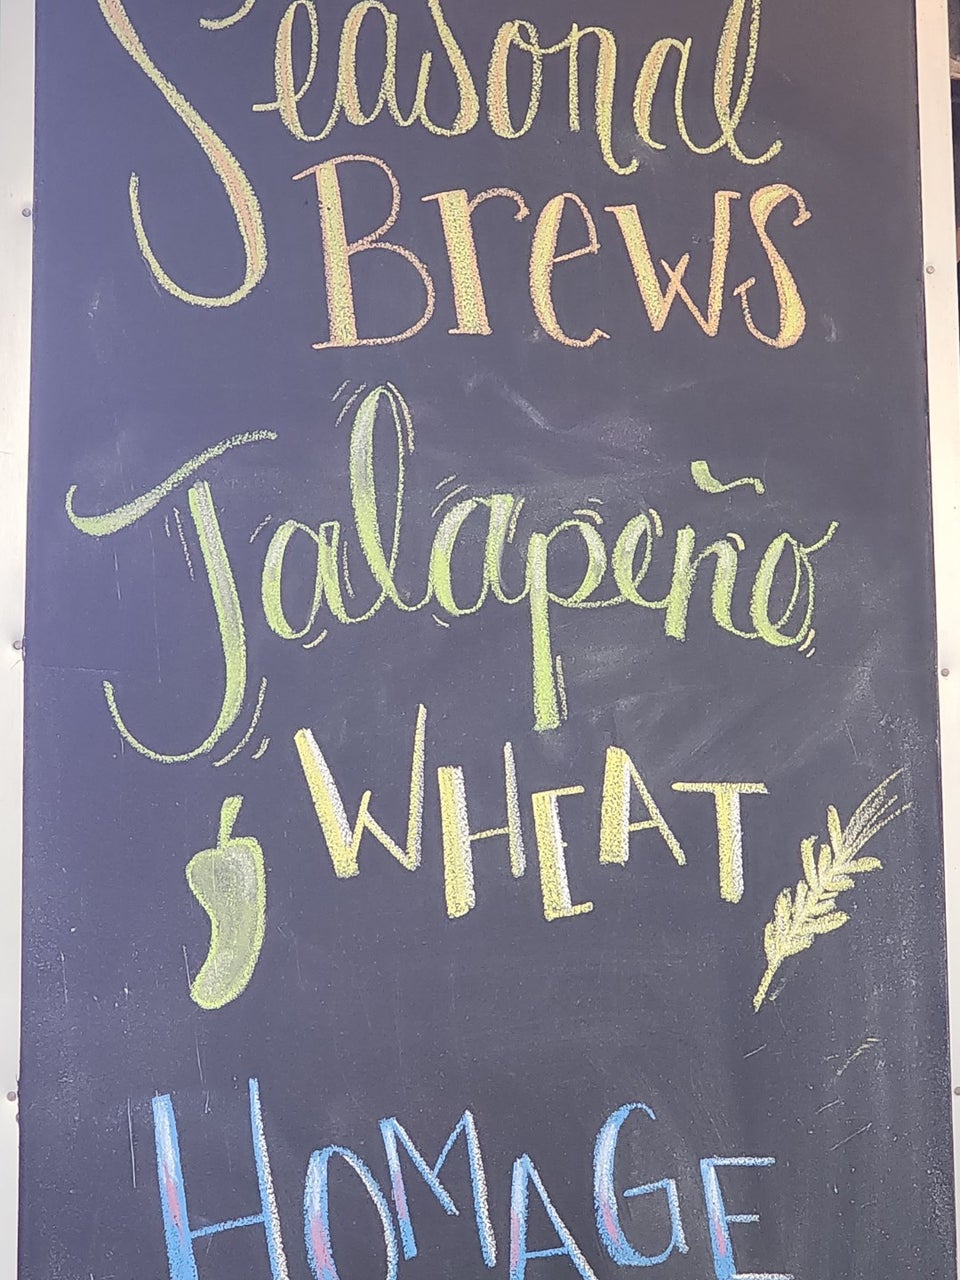 Seasonal
Brews
Jalapeño
WHEAT
HOMAGE